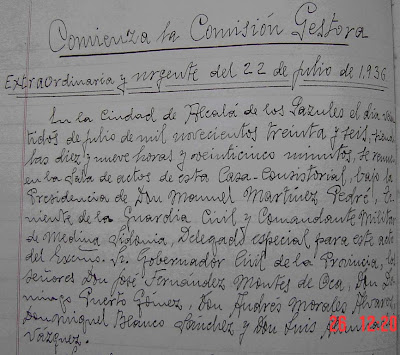 Comienza la Comisión Gestora
Extraordinaria y urgente del 22 de julio de 1.936
En la Ciudad de Alcalá de los Gazules el día vein
tidos de julio de mil novecientos treinta y seis, siendo
las diez y nueve horas y veinticinco minutos, se reunen
en la Sala de actos de esta Casa-Consistorial, bajo la
Presidencia de Don Manuel Martínez Pedré, te
niente de la Guardia Civil y Comandante Militar
de Medina Sidonia, Delegado especial para este acto
del Excmo. Sr. Gobernador Civil de la Provincia, los
señores Don José Fernández Montes de Oca, Don Do
mingo Puerto Gómez, Don Andrés Morales Alvarez,
Don Miguel Blanco Sánchez y Don Luis
Vázquez.